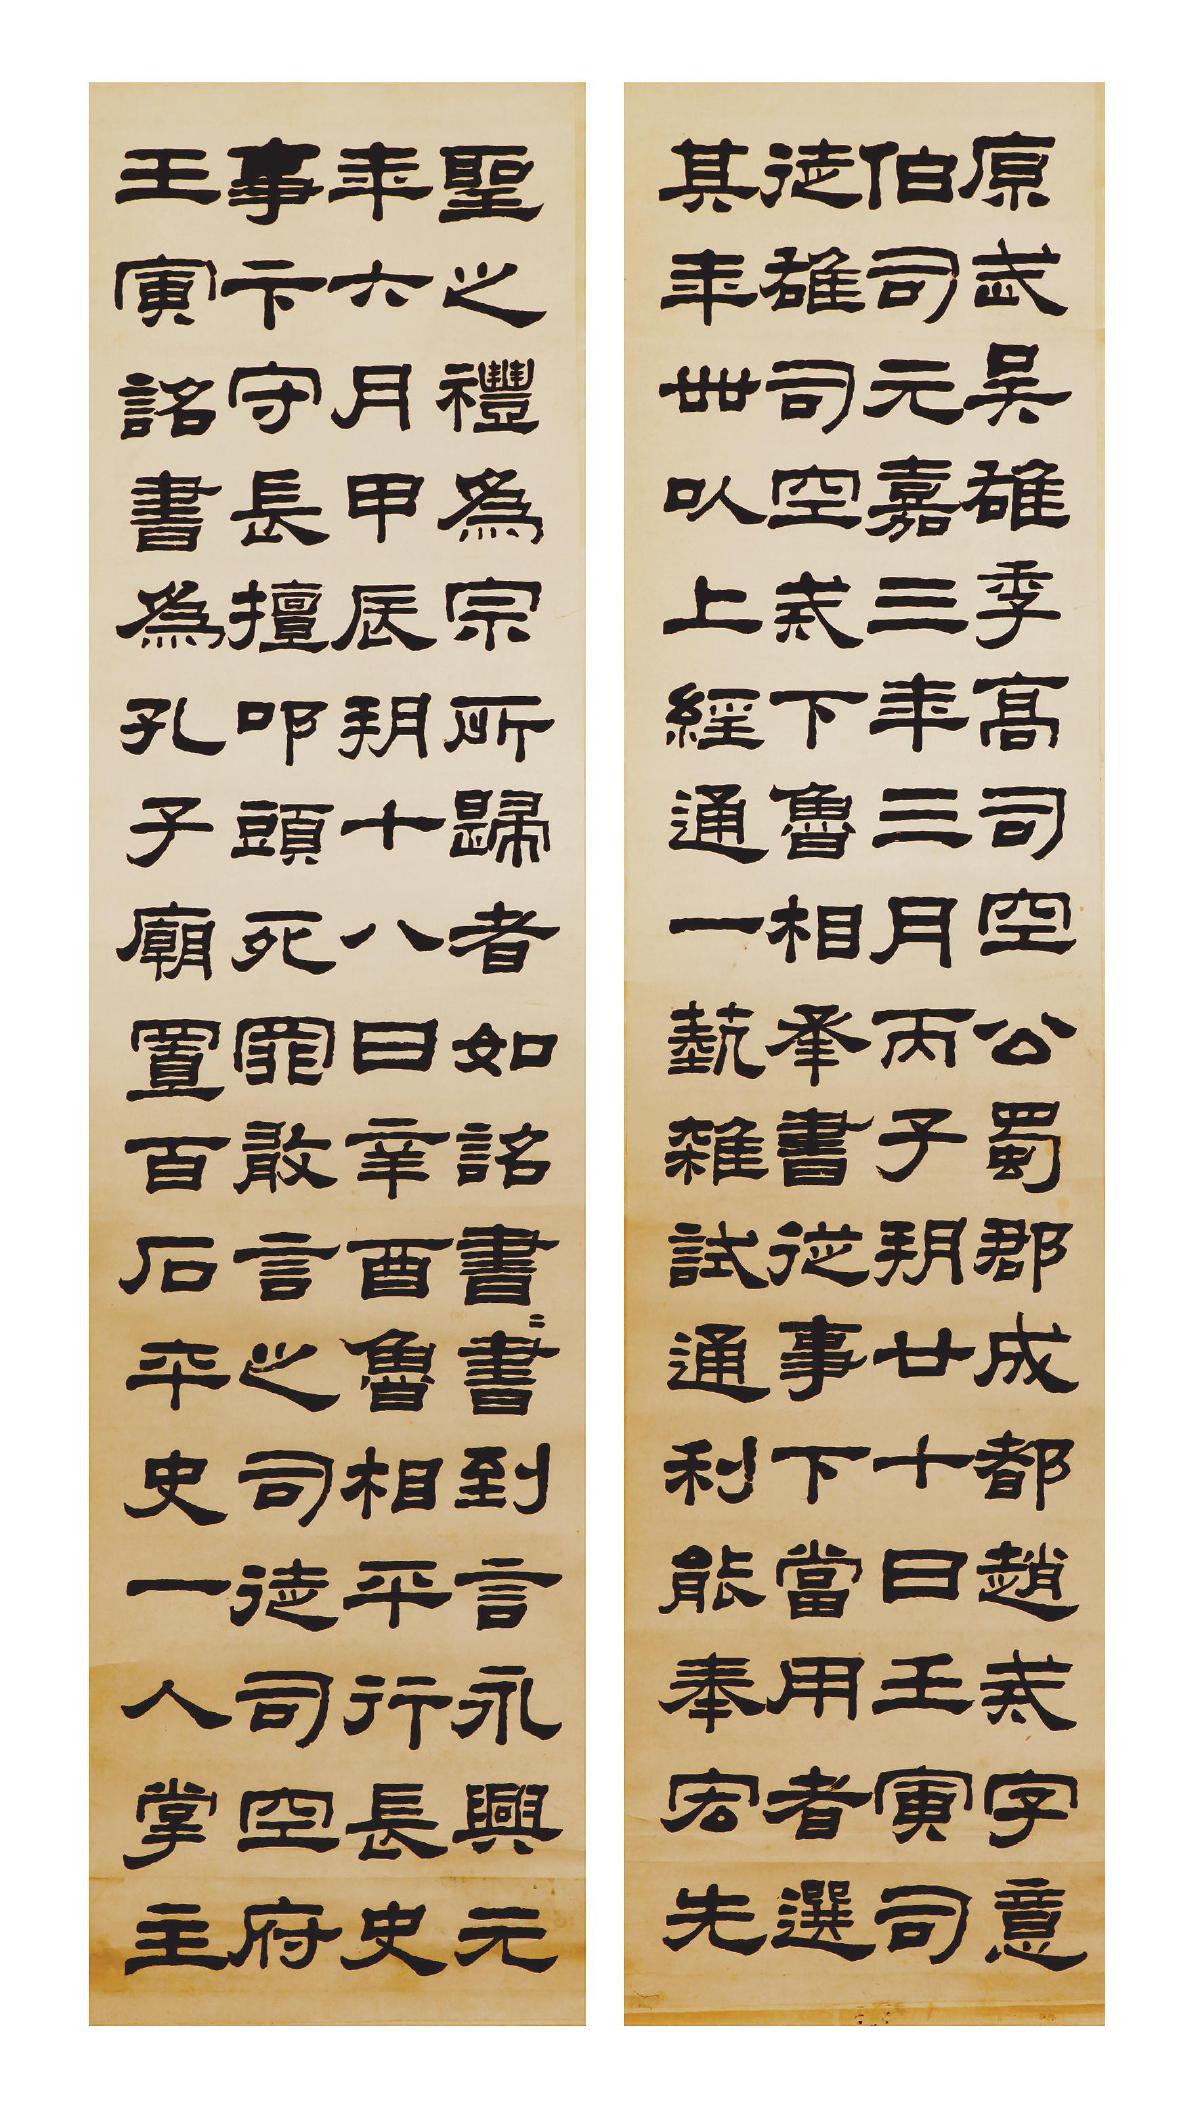 原武吳雄季高司空公蜀郡成都趙戒字意
伯司元嘉三年三月丙子朔廿十日壬寅司
徒雄司空戒下魯相承書從事下當用者選
其年卌以上經通一藝雜試通利能奉宏先
聖之禮為宗所歸者如詔書〻書到言永興元
年六月甲辰朔十八日辛酉魯相平行長史
事卞守長擅叩頭死罪敢言之司徒司空府
壬寅詔書為孔子廟置百石卒史一人掌主